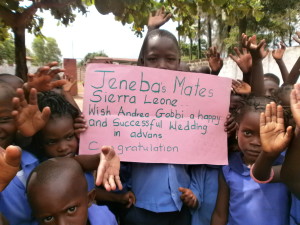 Tenebas Mates
Sierra Leone
Wish Andrea Gabbi a happy
and Successful Wedding
in advans
Congratulation